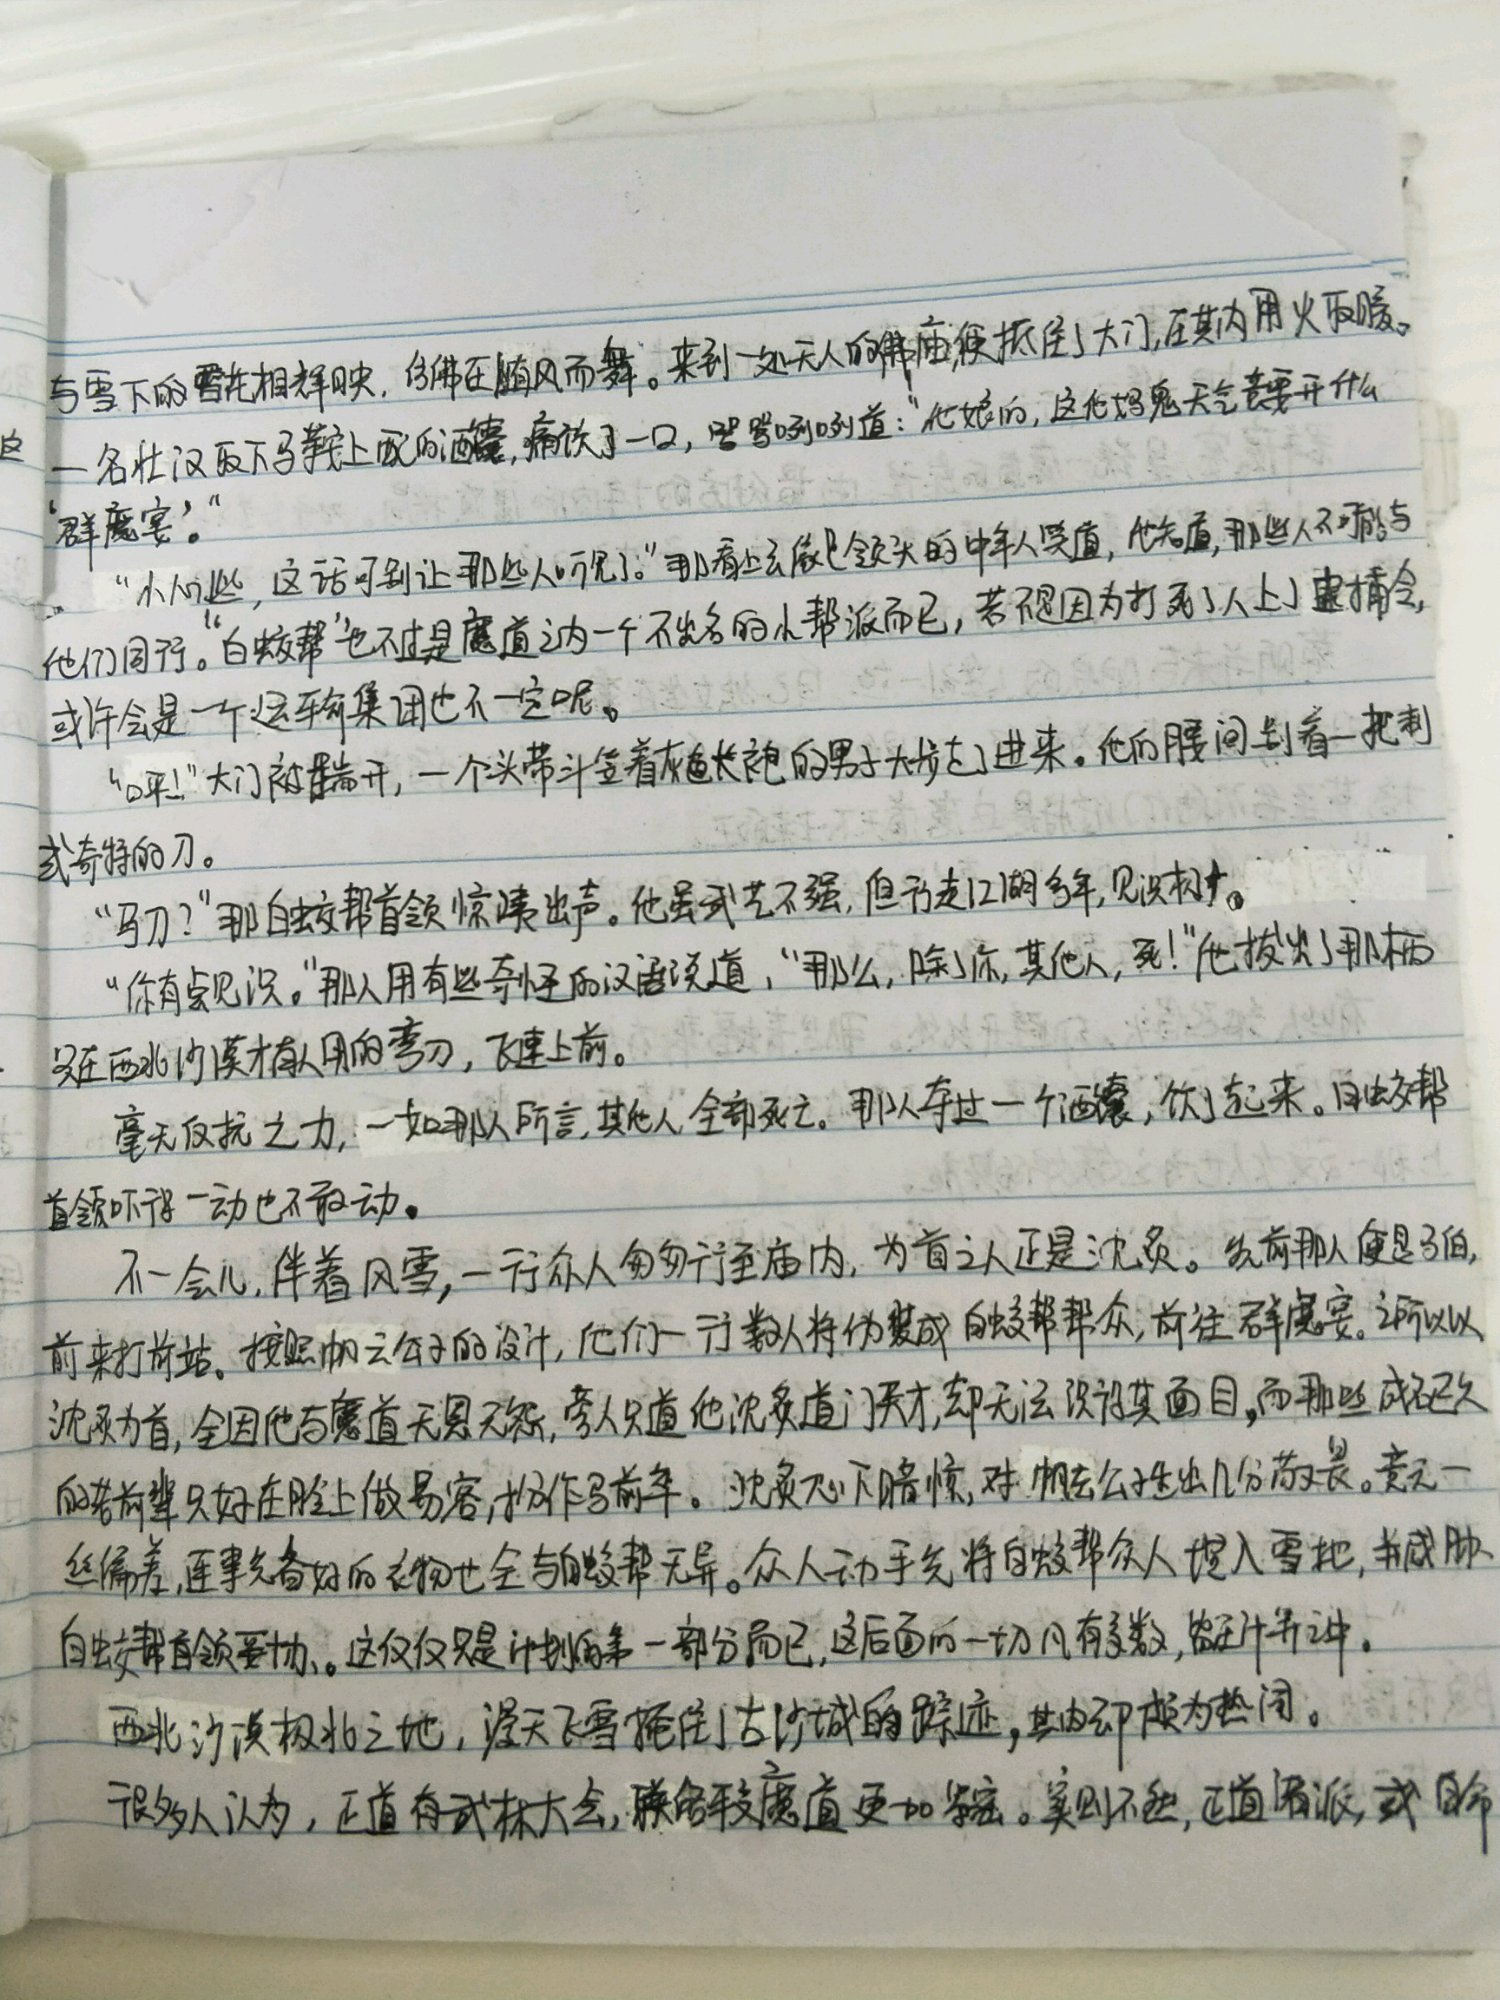 与雪下的雪花相辉映，仿佛在随风而舞。来到一处无人的佛庙，便抵住了大门，在其内用火取暖。
一名壮汉取下马鞍上配的酒囊，痛饮了一口，骂骂咧咧道：“他娘的，这他妈鬼天气竟要开什么
‘群魔宴’。”
“小心些，这话可别让那些人听见了。”那看上去像是领头的中年人笑道，他知道，那些人不可能与
他们同行。“白蛟帮”也不过是魔道之内一个不出名的小帮派而已，若不是因为打死了人上了逮捕令，
或许会是一个运输集团也不一定呢。
“呯！”大门被踹开，一个头带斗笠着灰色长袍的男子大步走了进来。他的腰间别着一把制
式奇特的刀。
“马刀？”那白蛟帮首领惊咦出声。他虽武艺不强，但行走江湖多年，见识极广。
“你有点见识。”那人用有些奇怪的汉语说道，“那么，除了你，其他人，死！”他拔出了那柄
只在西北沙漠才有人用的弯刀，飞速上前。
毫无反抗之力，一如那人所言，其他人全部死亡。那人夺过一个酒囊，饮了起来。白蛟帮
首领吓得一动也不敢动。
不一会儿，伴着风雪，一行众人匆匆行至庙内，为首之人正是沈炙。先前那人便是马伯，
前来打前站。按照帆云公子的设计，他们一行数人将伪装成白蛟帮帮众，前往群魔宴。之所以以
沈炙为首，全因他与魔道无恩无怨，旁人只道他沈炙道门天才，却无法识清其面目，而那些成名已久
的老前辈只好在脸上做易容，扮作马前卒。沈炙心下暗惊，对帆云公子生出几分敬畏。竟无一
丝偏差，连事先备好的衣物也全与白蛟帮无异。众人动手先将白蛟帮众人埋入雪地，并威胁
白蛟帮首领妥协。这仅仅只是计划的第一部分而已，这后面的一切凡有多数，皆在计算之中。
西北沙漠极北之地，漫天飞雪掩住了古沙城的踪迹，其内却颇为热闹。
很多人认为，正道有武林大会，联络较魔道更加紧密。实则不然，正道诸派，或自命